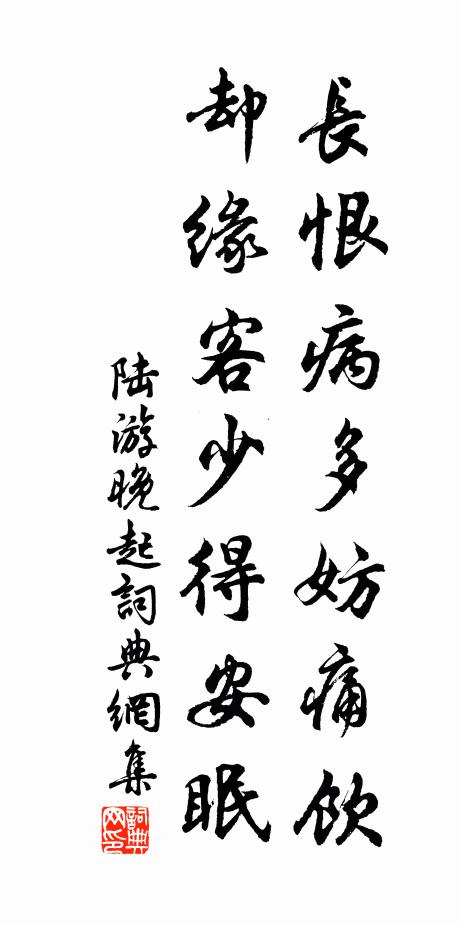 長恨病多妨痛飲
却緣客少得安眠
陆游晚起詞典網集
詞典网印